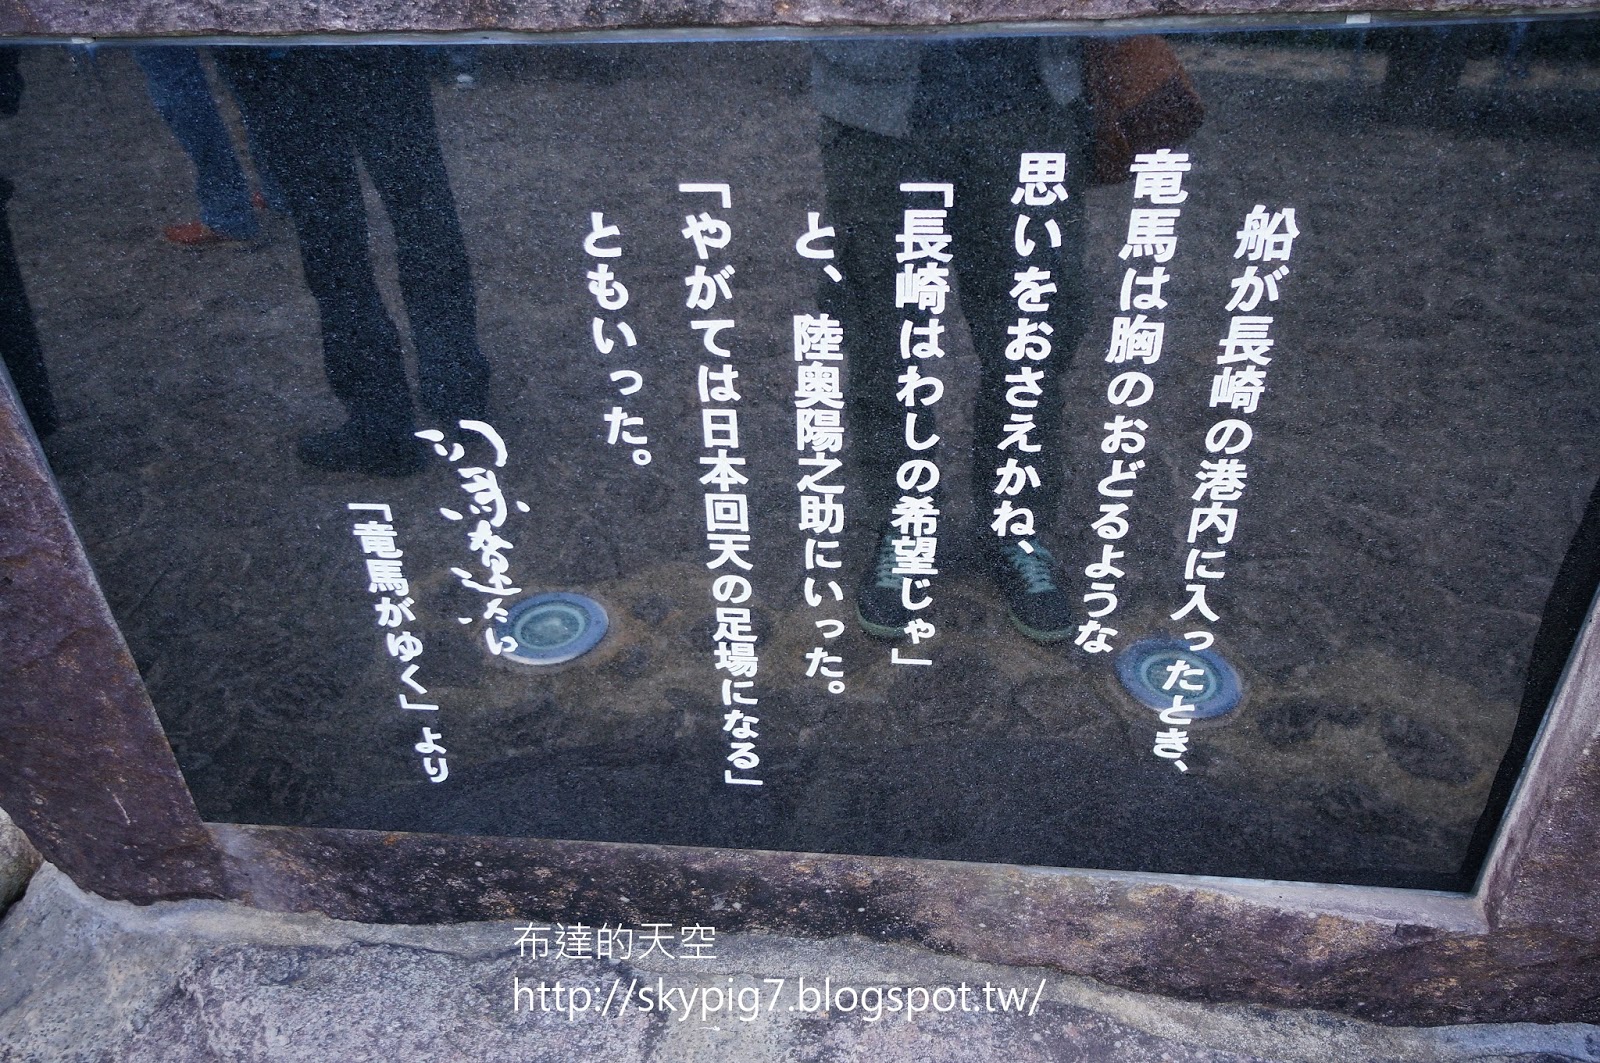 船が長崎の港内に入ったとき、
竜馬は胸のおどるような
思いをおさえかね、
「長崎はわしの希望じゃ」
と、陸奥陽之助にいった。
「やがては日本回天の足場になる」
ともいった。
司馬遼太郎
「竜馬がゆく」より
布達的天空
http://skypig7.blogspot.tw/